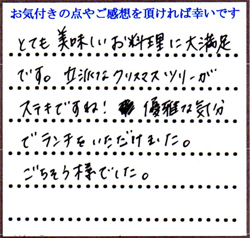 お気付きの点やご感想を頂ければ幸いです
とても美味しいお料理に大満足
です。立派なクリスマスツリーが
ステキですね！優雅な気分
でランチをいただけました。
ごちそう様でした。